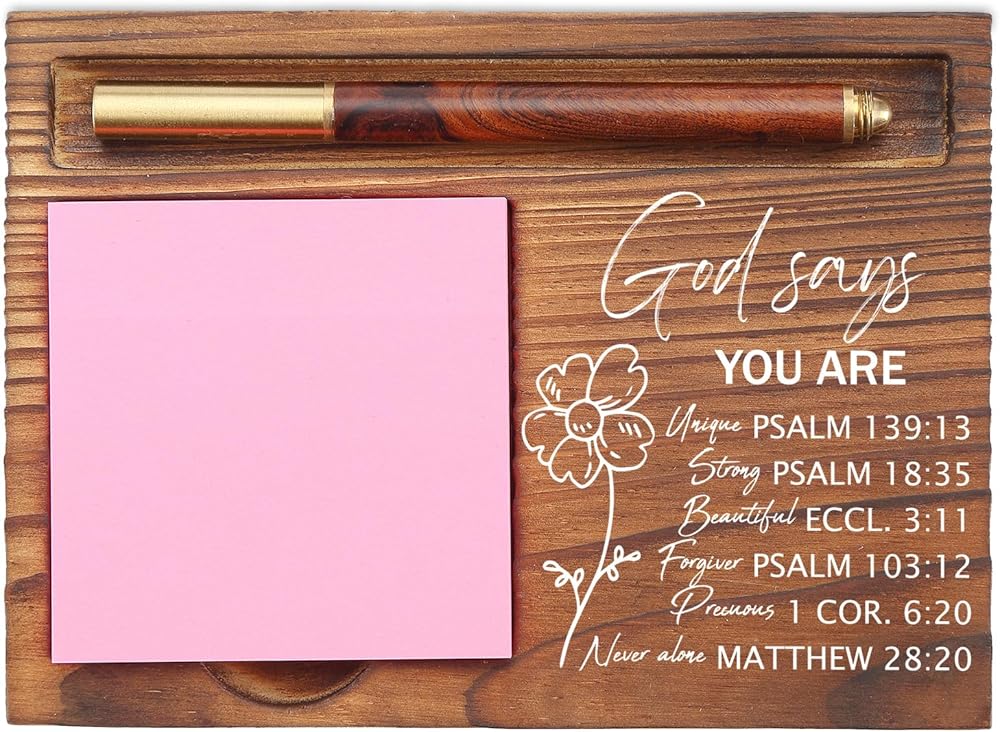 God says
YOU ARE
Unique PSALM 139:13
Strong PSALM 18:35
Beautiful ECCL. 3:11
Forgiver PSALM 103:12
Precuous 1 COR. 6:20
Never alone MATTHEW 28:20